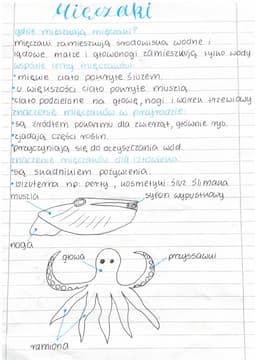 Mięczaki
gdzie mieszkają mięczaki?
mięczaki zamieszkują środowiska wodne i
lądowe. małże i głowonogi zamieszkują tylko wody
wspólne cechy mięczaków:
•miękkie ciało pokryte śluzem.
•u większości ciało pokryte muszlą.
•ciało podzielone na głowę, nogi i worek trzewiowy
znaczenie mięczaków w przyrodzie:
•są źródłem pokarmu dla zwierząt, głównie ryb.
•zjadają części roślin.
•przyczyniają się do oczyszczania wód.
znaczenie mięczaków dla człowieka:
•są składnikiem pożywienia.
•biżuteria np. perły, kosmetyki śluz ślimaka
muszla
syfon wypustkowy
noga
głowa
przyssawki
ramiona